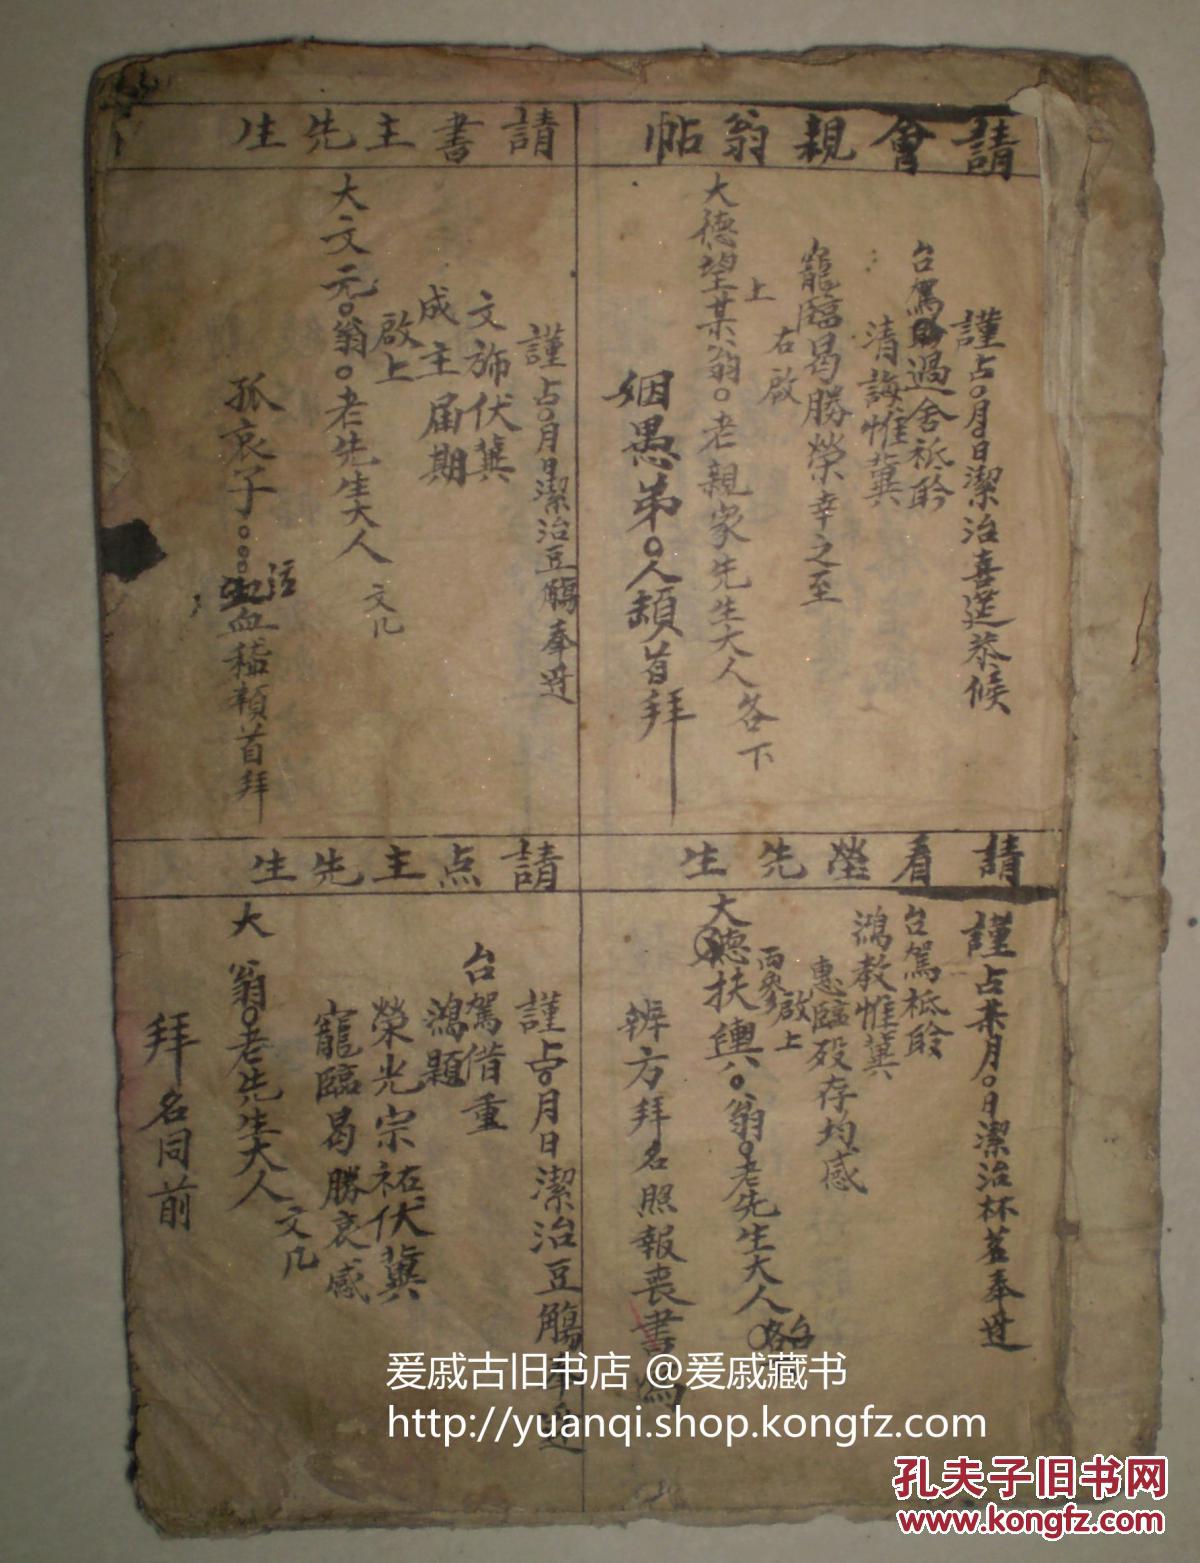 請會親翁帖
謹占〇月〇日潔治喜筵恭候
台駕過舍祗聆
清誨惟冀
寵臨曷勝榮幸之至
右啟
上
大德望某翁〇老親家先生大人 各下
姻愚弟〇人頓首拜
請書主先生
謹占〇月〇日潔治豆觴奉迓
文旆伏冀
成主届期
啟上
大文元〇翁〇老先生大人 文几
孤哀子〇〇〇泣血稽顙首拜
請看塋先生
謹占某月〇日潔治杯茗奉迓
台駕祗聆
鴻教惟冀
惠臨歿存均感
啟上
大德扶輿〇翁〇老先生大人
辨方拜名照報喪書寫
請点主先生
謹占〇月日潔治豆觴奉迓
台駕借重
鴻題
榮光宗祏伏冀
寵臨曷勝哀感
大 翁〇老先生大人 文几
拜名同前
爱戚古旧书店 @爱戚藏书
http://yuanqi.shop.kongfz.com
孔夫子旧书网
www.kongfz.com